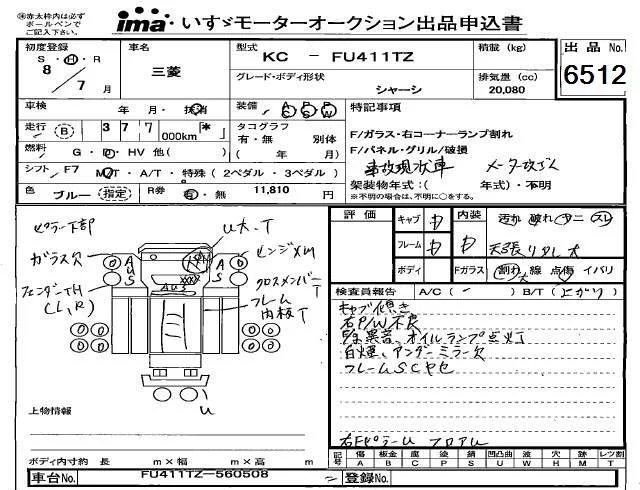 ㊟赤太枠内は必ず
ボールペンで
ご記入下さい。
ima いすゞモーターオークション出品申込書
初度登録
S・H・R
8／7月
車名
三菱
型式
KC － FU411TZ
グレード・ボディ形状
シャーシ
積載 (kg)
排気量 (cc)
20,080
出品 No.
6512
車検 年 月・抹消
走行 (B) 377,000km 「*」
燃料 G・D・HV 他( )
シフト F7 M/T・A/T・特殊(2ペダル・3ペダル)
色 ブルー (指定)
R券 有・無 11,810 円
装備 A P P
S S W
タコグラフ 別体
有・無
( 年 月)
特記事項
F/ガラス・右コーナーランプ割れ
F/パネル・グリル/破損
事故現状車 メータ改ざん
架装物年式:( 年式)・不明
※不明の場合は、不明に○をする。
ピラー下部
ガラス欠
フェンダーTH
(L,R)
U大、T
ヒンジメU
クロスメンバーT
フレーム
内板T
AUS
AUS
AUS
U
上物情報
ボディ内寸約 長 m×幅 m×高 m
車台No. FU411TZ-560508
評価
キャブ
フレーム
ボディ
内装
Fガラス
汚れ 破れ ヤニ スレ
天張りタレ 大
割れ 線 点傷 イバリ
検査員報告 A/C( － ) B/T(上がり)
キャブ傾き
右P/W不良
E/g異音、オイルランプ点灯
白煙、アンダーミラー欠
フレームSCヤセ
右FピラーU フロアU
記号 傷 板金 腐 塗 錆 凹凸曲 波 穴 跡 レツ割
A B C P S U W H M T
登録No.